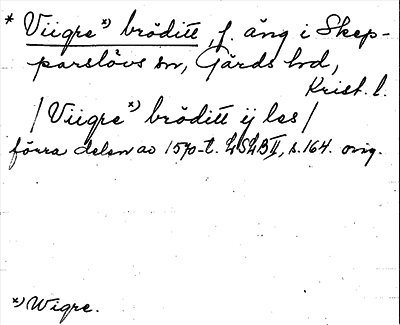 * Viigre*) bröditt, f. äng i Skep-
parslövs sn, Gärds hd,
Krist. l.
/Viigre*) bröditt ij las/
förra delen av 1570-t. LSLB II, s. 164. orig.
*) Wigre.